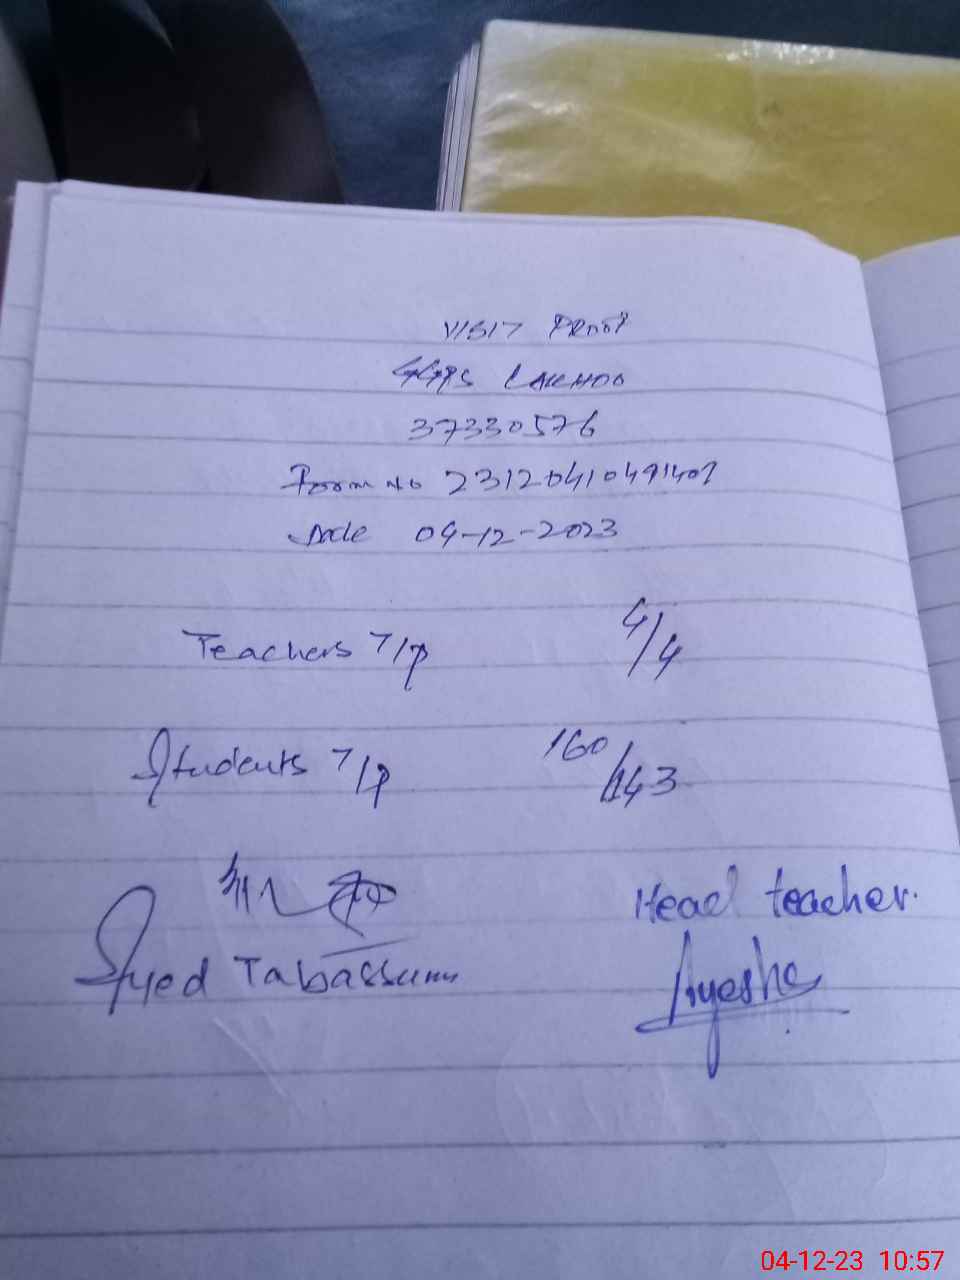 VISIT PROOF
GGPS LAKHOO
37330576
Form No 23120410491407
Date 04-12-2023
Teachers T/P 4/4
Students T/P 160/143
Head teacher.
Syed Tabassum
Ayesha
04-12-23 10:57